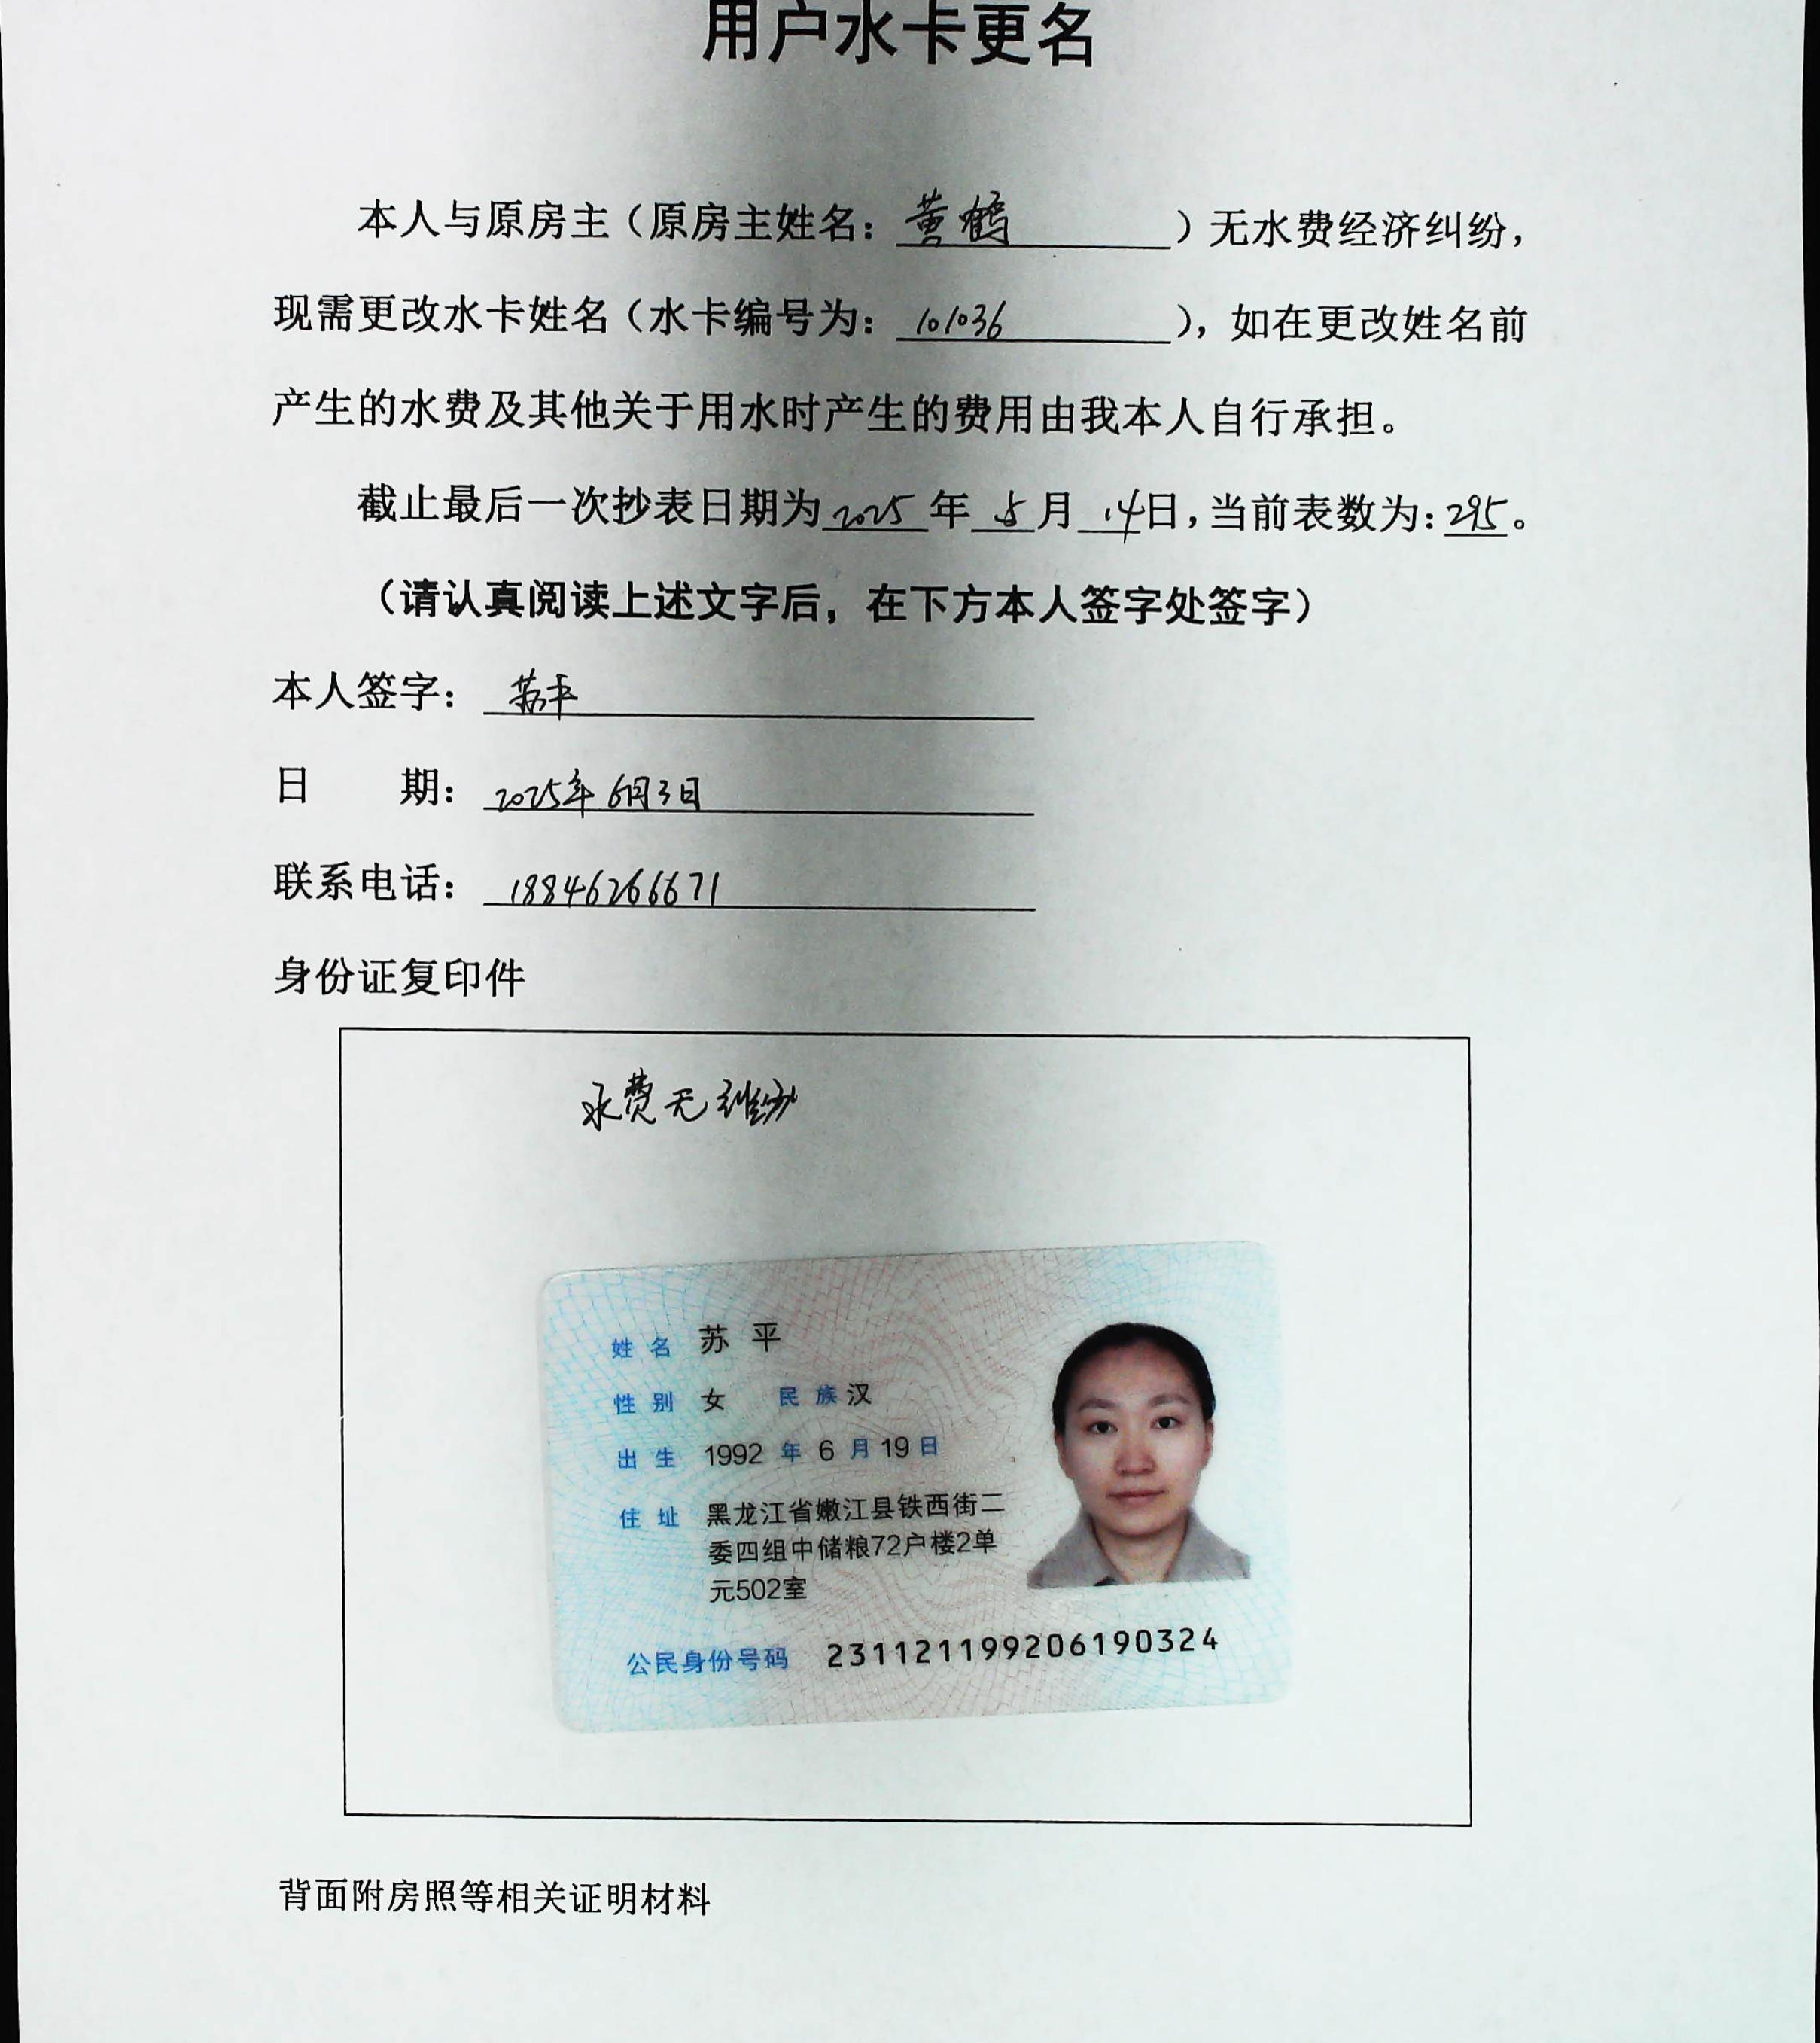 用户水卡更名
本人与原房主（原房主姓名：黄鹤）无水费经济纠纷，
现需更改水卡姓名（水卡编号为：101036），如在更改姓名前
产生的水费及其他关于用水时产生的费用由我本人自行承担。
截止最后一次抄表日期为2025年5月14日，当前表数为：295。
（请认真阅读上述文字后，在下方本人签字处签字）
本人签字：苏平
日 期：2025年6月3日
联系电话：18846266671
身份证复印件
水费无纠纷
姓名 苏平
性别 女 民族 汉
出生 1992年6月19日
住址 黑龙江省嫩江县铁西街二
委四组中储粮72户楼2单
元502室
公民身份号码 231121199206190324
背面附房照等相关证明材料